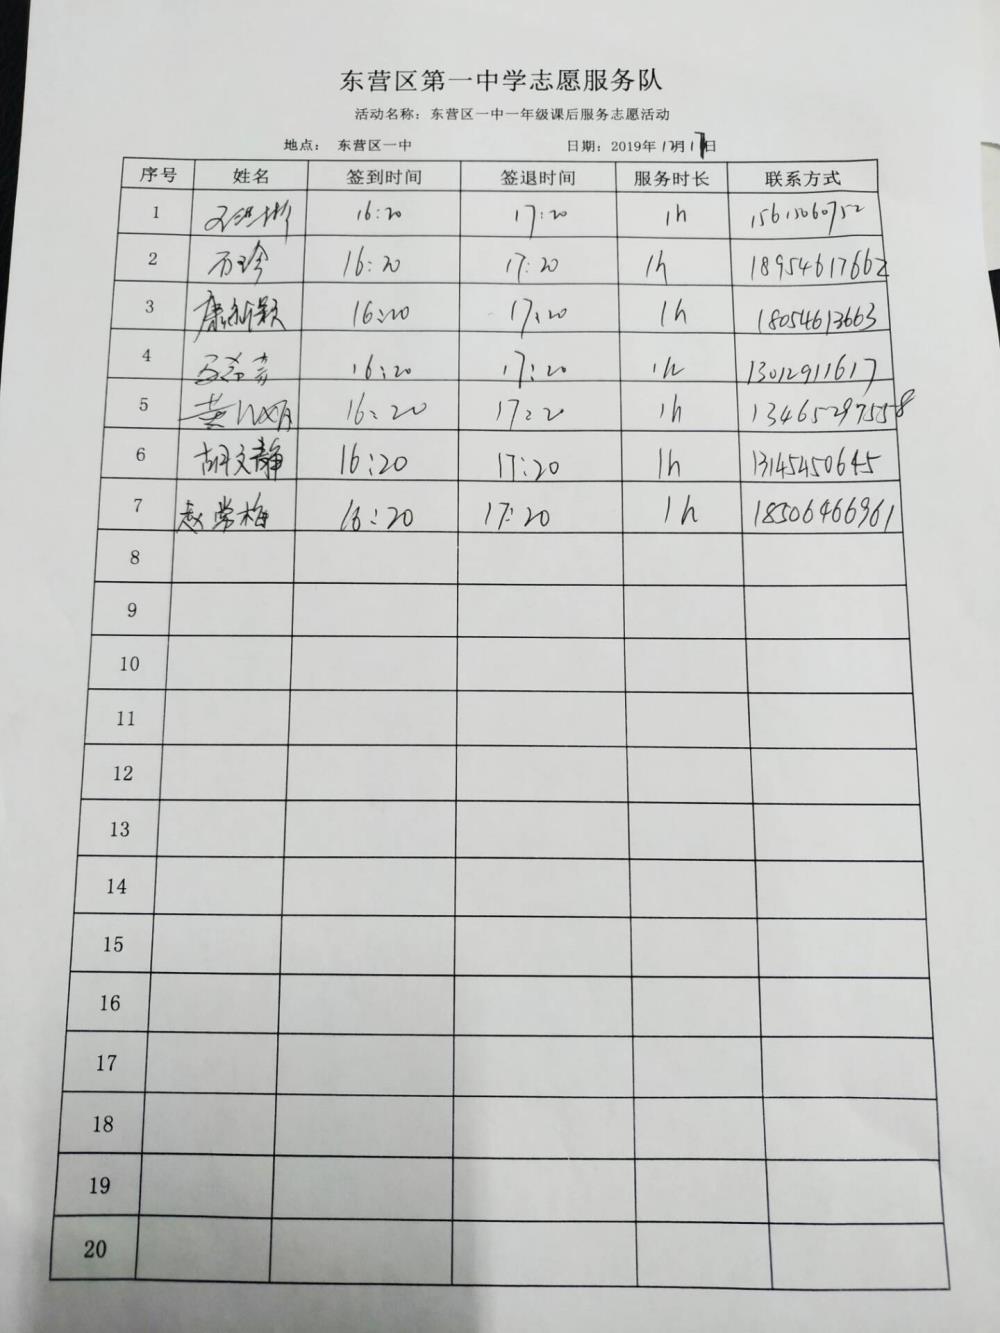 东营区第一中学志愿服务队
活动名称：东营区一中一年级课后服务志愿活动
地点： 东营区一中 日期：2019年12月17日
序号 姓名 签到时间 签退时间 服务时长 联系方式
1 16:20 17:20 1h 15615060752
2 万珍 16:20 17:20 1h 18954617662
3 康新颖 16:20 17:20 1h 18054613663
4 16:20 17:20 1h 13012911617
5 16:20 17:20 1h 13465297558
6 胡文静 16:20 17:20 1h 13145450645
7 赵常梅 16:20 17:20 1h 18506466961
8
9
10
11
12
13
14
15
16
17
18
19
20